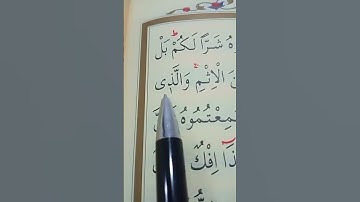 وهُ شَرًّا لَكُمْ بَلْ
نَ الْاِثْمِ وَالَّذ۪ي
سَمِعْتُمُوهُ
ذَٓا اِفْكٌ